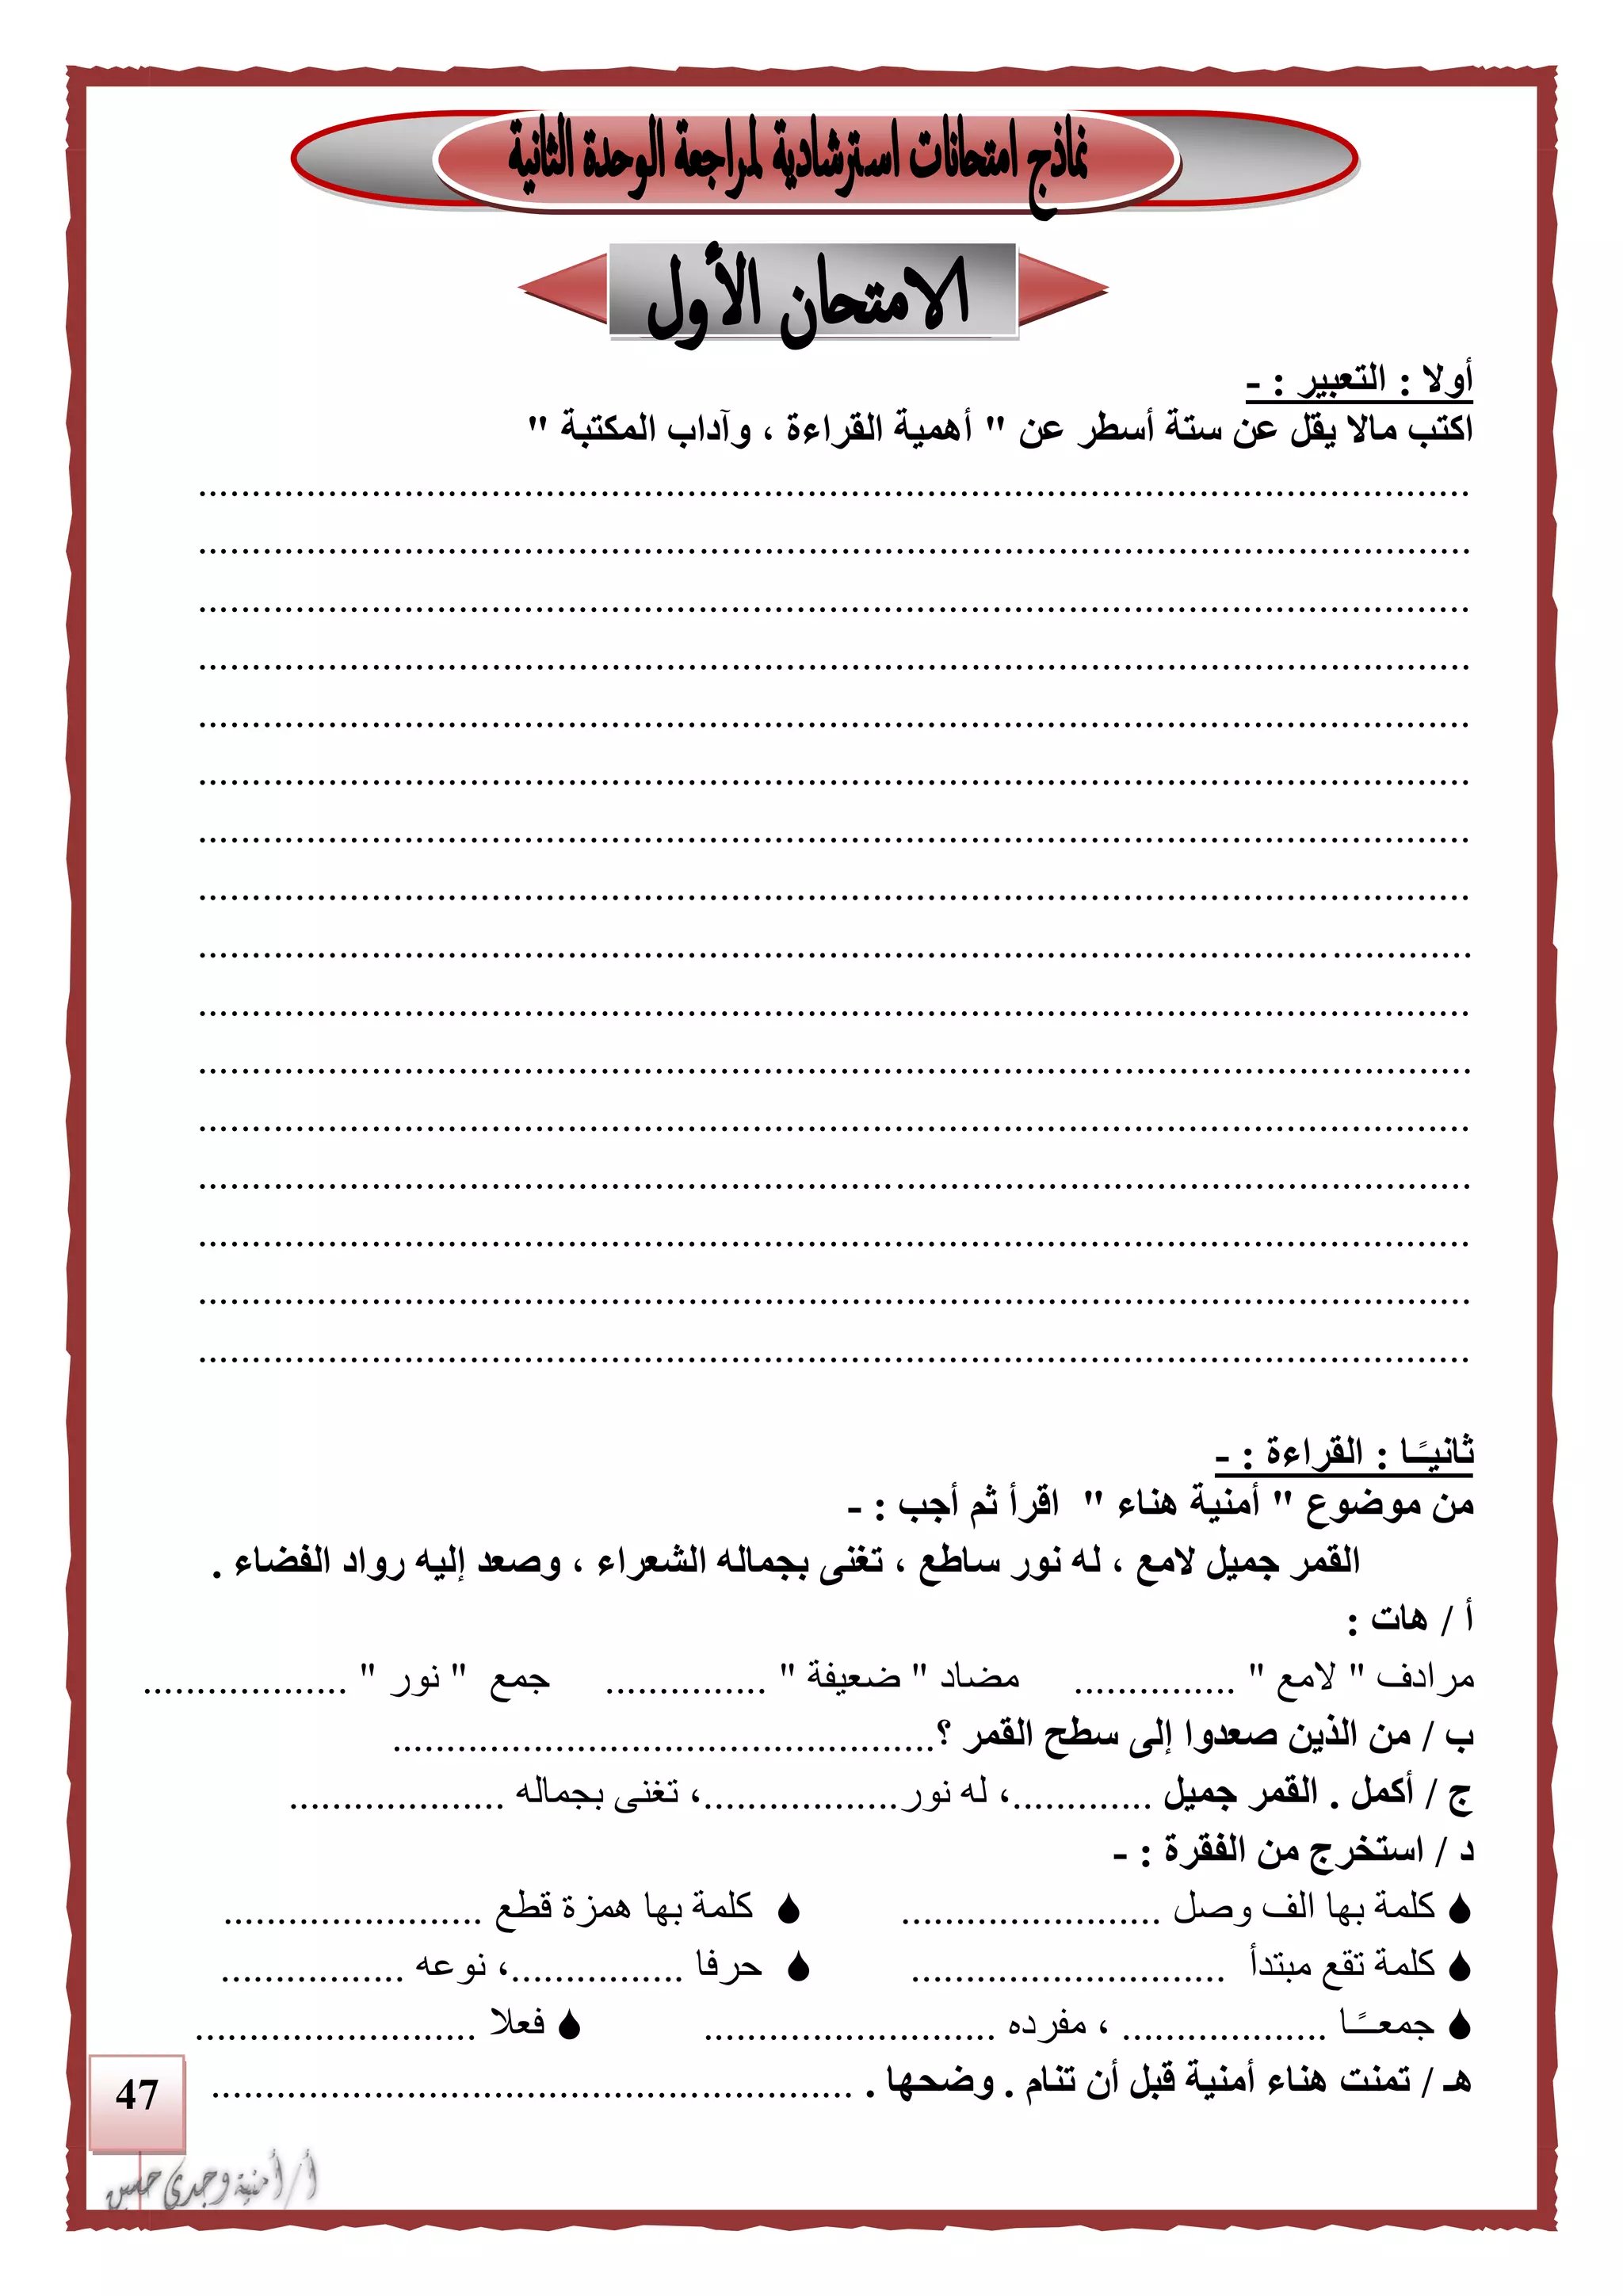 نماذج امتحانات استرشادية لمراجعة الوحدة الثانية
الامتحان الأول
أولا : التعبير : -
اكتب مالا يقل عن ستة أسطر عن " أهمية القراءة ، وآداب المكتبة "
................................................................................
................................................................................
................................................................................
................................................................................
................................................................................
................................................................................
................................................................................
................................................................................
................................................................................
................................................................................
................................................................................
................................................................................
................................................................................
................................................................................
................................................................................
................................................................................
ثانيـًـا : القراءة : -
من موضوع " أمنية هناء " اقرأ ثم أجب : -
القمر جميل لامع ، له نور ساطع ، تغنى بجماله الشعراء ، وصعد إليه رواد الفضاء .
أ / هات :
مرادف " لامع " ............... مضاد " ضعيفة " ............... جمع " نور " ...................
ب / من الذين صعدوا إلى سطح القمر ؟...................................................
ج / أكمل . القمر جميل .............، له نور..................، تغنى بجماله ....................
د / استخرج من الفقرة : -
كلمة بها الف وصل ........................ كلمة بها همزة قطع ........................
كلمة تقع مبتدأ ............................. حرفا ................، نوعه .................
جمعـــًـا ................... ، مفرده ........................... فعلا ..........................
هـ / تمنت هناء أمنية قبل أن تنام . وضحها . ............................................................
47
أ/ أمنية وجدى حسين